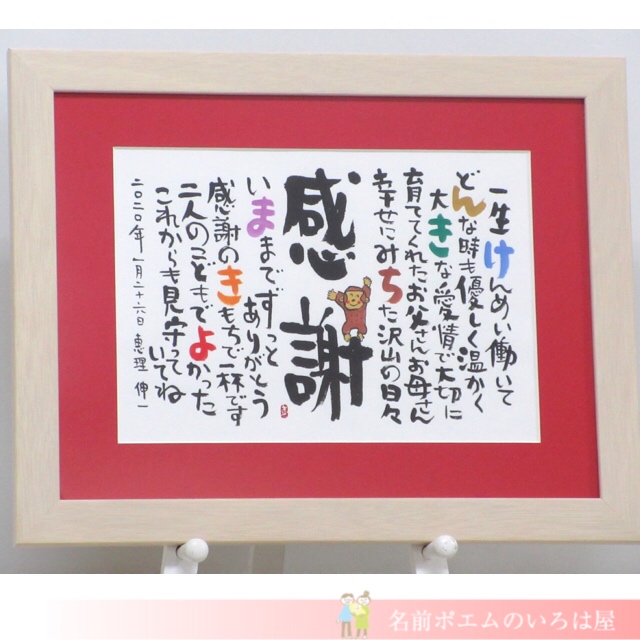 一生けんめい働いて
どんな時も優しく温かく
大きな愛情で大切に
育ててくれたお父さんお母さん
幸せにみちた沢山の日々
感謝
いままでずっと
ありがとう
感謝のきもちで一杯です
二人のこどもでよかった
これからも見守って
いてね
二〇二〇年一月二十六日 恵理 伸一
名前ポエムのいろは屋